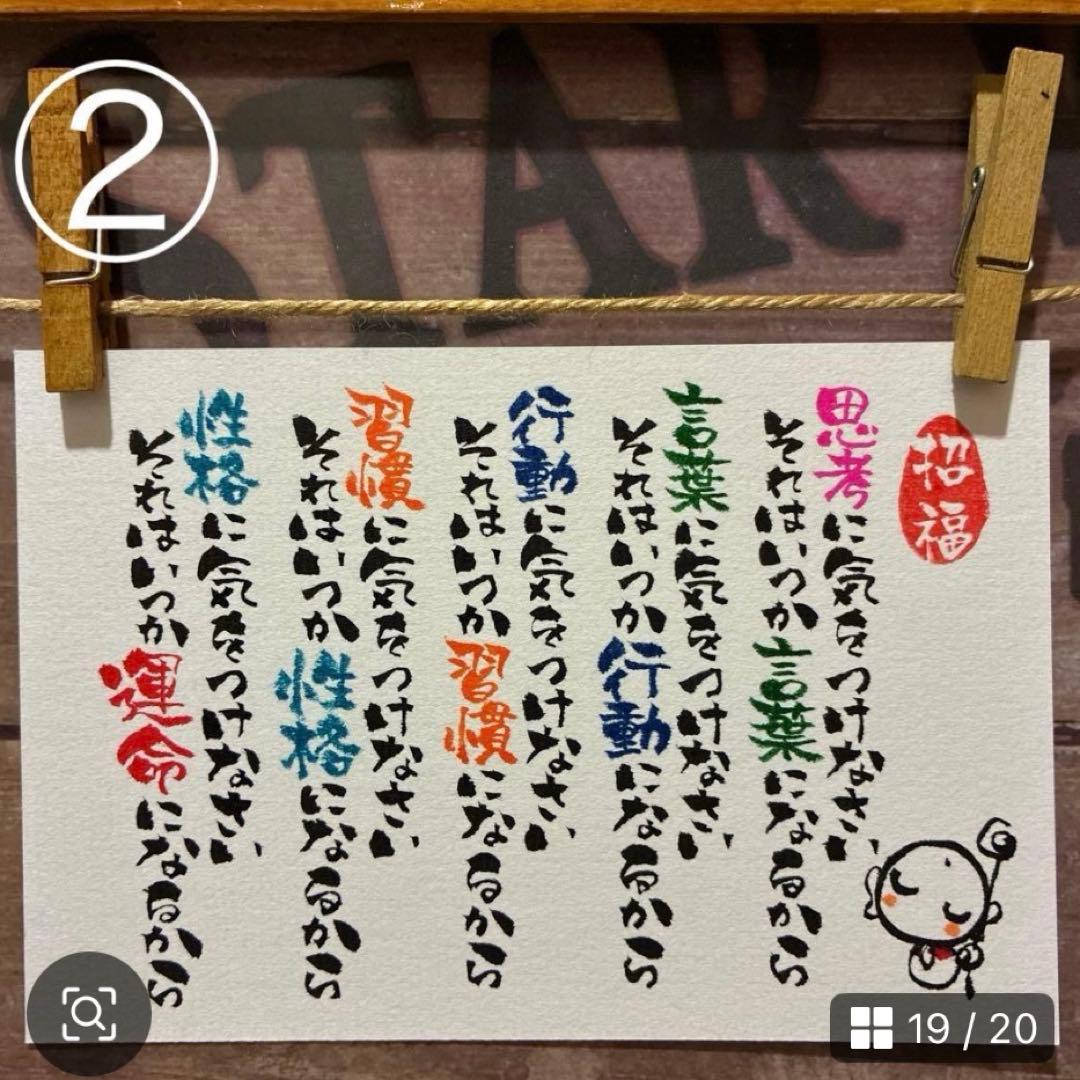 ②
STAR
招福
思考に気をつけなさい
それはいつか言葉になるから
言葉に気をつけなさい
それはいつか行動になるから
行動に気をつけなさい
それはいつか習慣になるから
習慣に気をつけなさい
それはいつか性格になるから
性格に気をつけなさい
それはいつか運命になるから
19 / 20